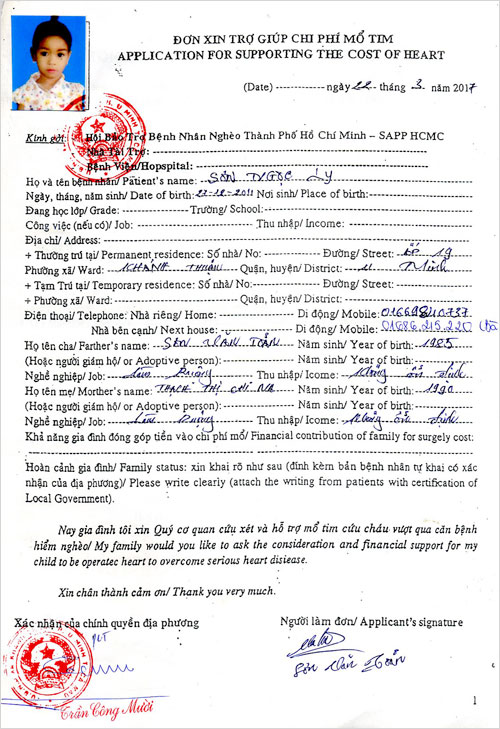 ĐƠN XIN TRỢ GIÚP CHI PHÍ MỔ TIM
APPLICATION FOR SUPPORTING THE COST OF HEART
(Date) ------------ ngày 22 tháng 3 năm 2017
Kính gởi: Hội Bảo Trợ Bệnh Nhân Nghèo Thành Phố Hồ Chí Minh – SAPP HCMC
Nhà Tài Trợ:
Bệnh Viện/Hopspital:
Họ và tên bệnh nhân/ Patient's name: SƠN NGỌC LY
Ngày, tháng, năm sinh/ Date of birth: 22-12-2011 Nơi sinh/ Place of birth:
Đang học lớp/ Grade: Trường/ School:
Công việc (nếu có)/ Job: Thu nhập/ Income:
Địa chỉ/ Address:
+ Thường trú tại/ Permanent residence: Số nhà/ No: Đường/ Street: ấp 19
Phường xã/ Ward: KHÁNH THUẬN Quận, huyện/ District: U Minh
+ Tạm Trú tại/ Temporary residence: Số nhà/ No: Đường/ Street:
+ Phường xã/ Ward: Quận, huyện/ District:
Điện thoại/ Telephone: Nhà riêng/ Home: Di động/ Mobile:
Nhà bên cạnh/ Next house: Di động/ Mobile: 01686.215.220
Họ tên cha/ Farther's name: SƠN VĂN TOẢN Năm sinh/ Year of birth: 1985
(Hoặc người giám hộ/ or Adoptive person): Năm sinh/ Year of birth:
Nghề nghiệp/ Job: Làm Ruộng Thu nhập/ Icome: Không ổn định
Họ tên mẹ/ Morther's name: THẠCH THỊ CHI NA Năm sinh/ Year of birth: 1990
(Hoặc người giám hộ/ or Adoptive person): Năm sinh/ Year of birth:
Nghề nghiệp/ Job: Làm Ruộng Thu nhập/ Income: Không ổn định
Khả năng gia đình đóng góp tiền vào chi phí mổ/ Financial contribution of family for surgely cost:
Hoàn cảnh gia đình/ Family status: xin khai rõ như sau (đính kèm bản bệnh nhân tự khai có xác
nhận của địa phương)/ Please write clearly (attach the writing from patients with certification of
Local Government).
Nay gia đình tôi xin Quý cơ quan cứu xét và hỗ trợ mổ tim cứu cháu vượt qua căn bệnh
hiểm nghèo/ My family would you like to ask the consideration and financial support for my
child to be operatec heart to overcome serious heart disiease.
Xin chân thành cảm ơn/ Thank you very much.
Xác nhận của chính quyền địa phương Người làm đơn/ Applicant's signature
Sơn Văn Toản
Trần Công Mười
1